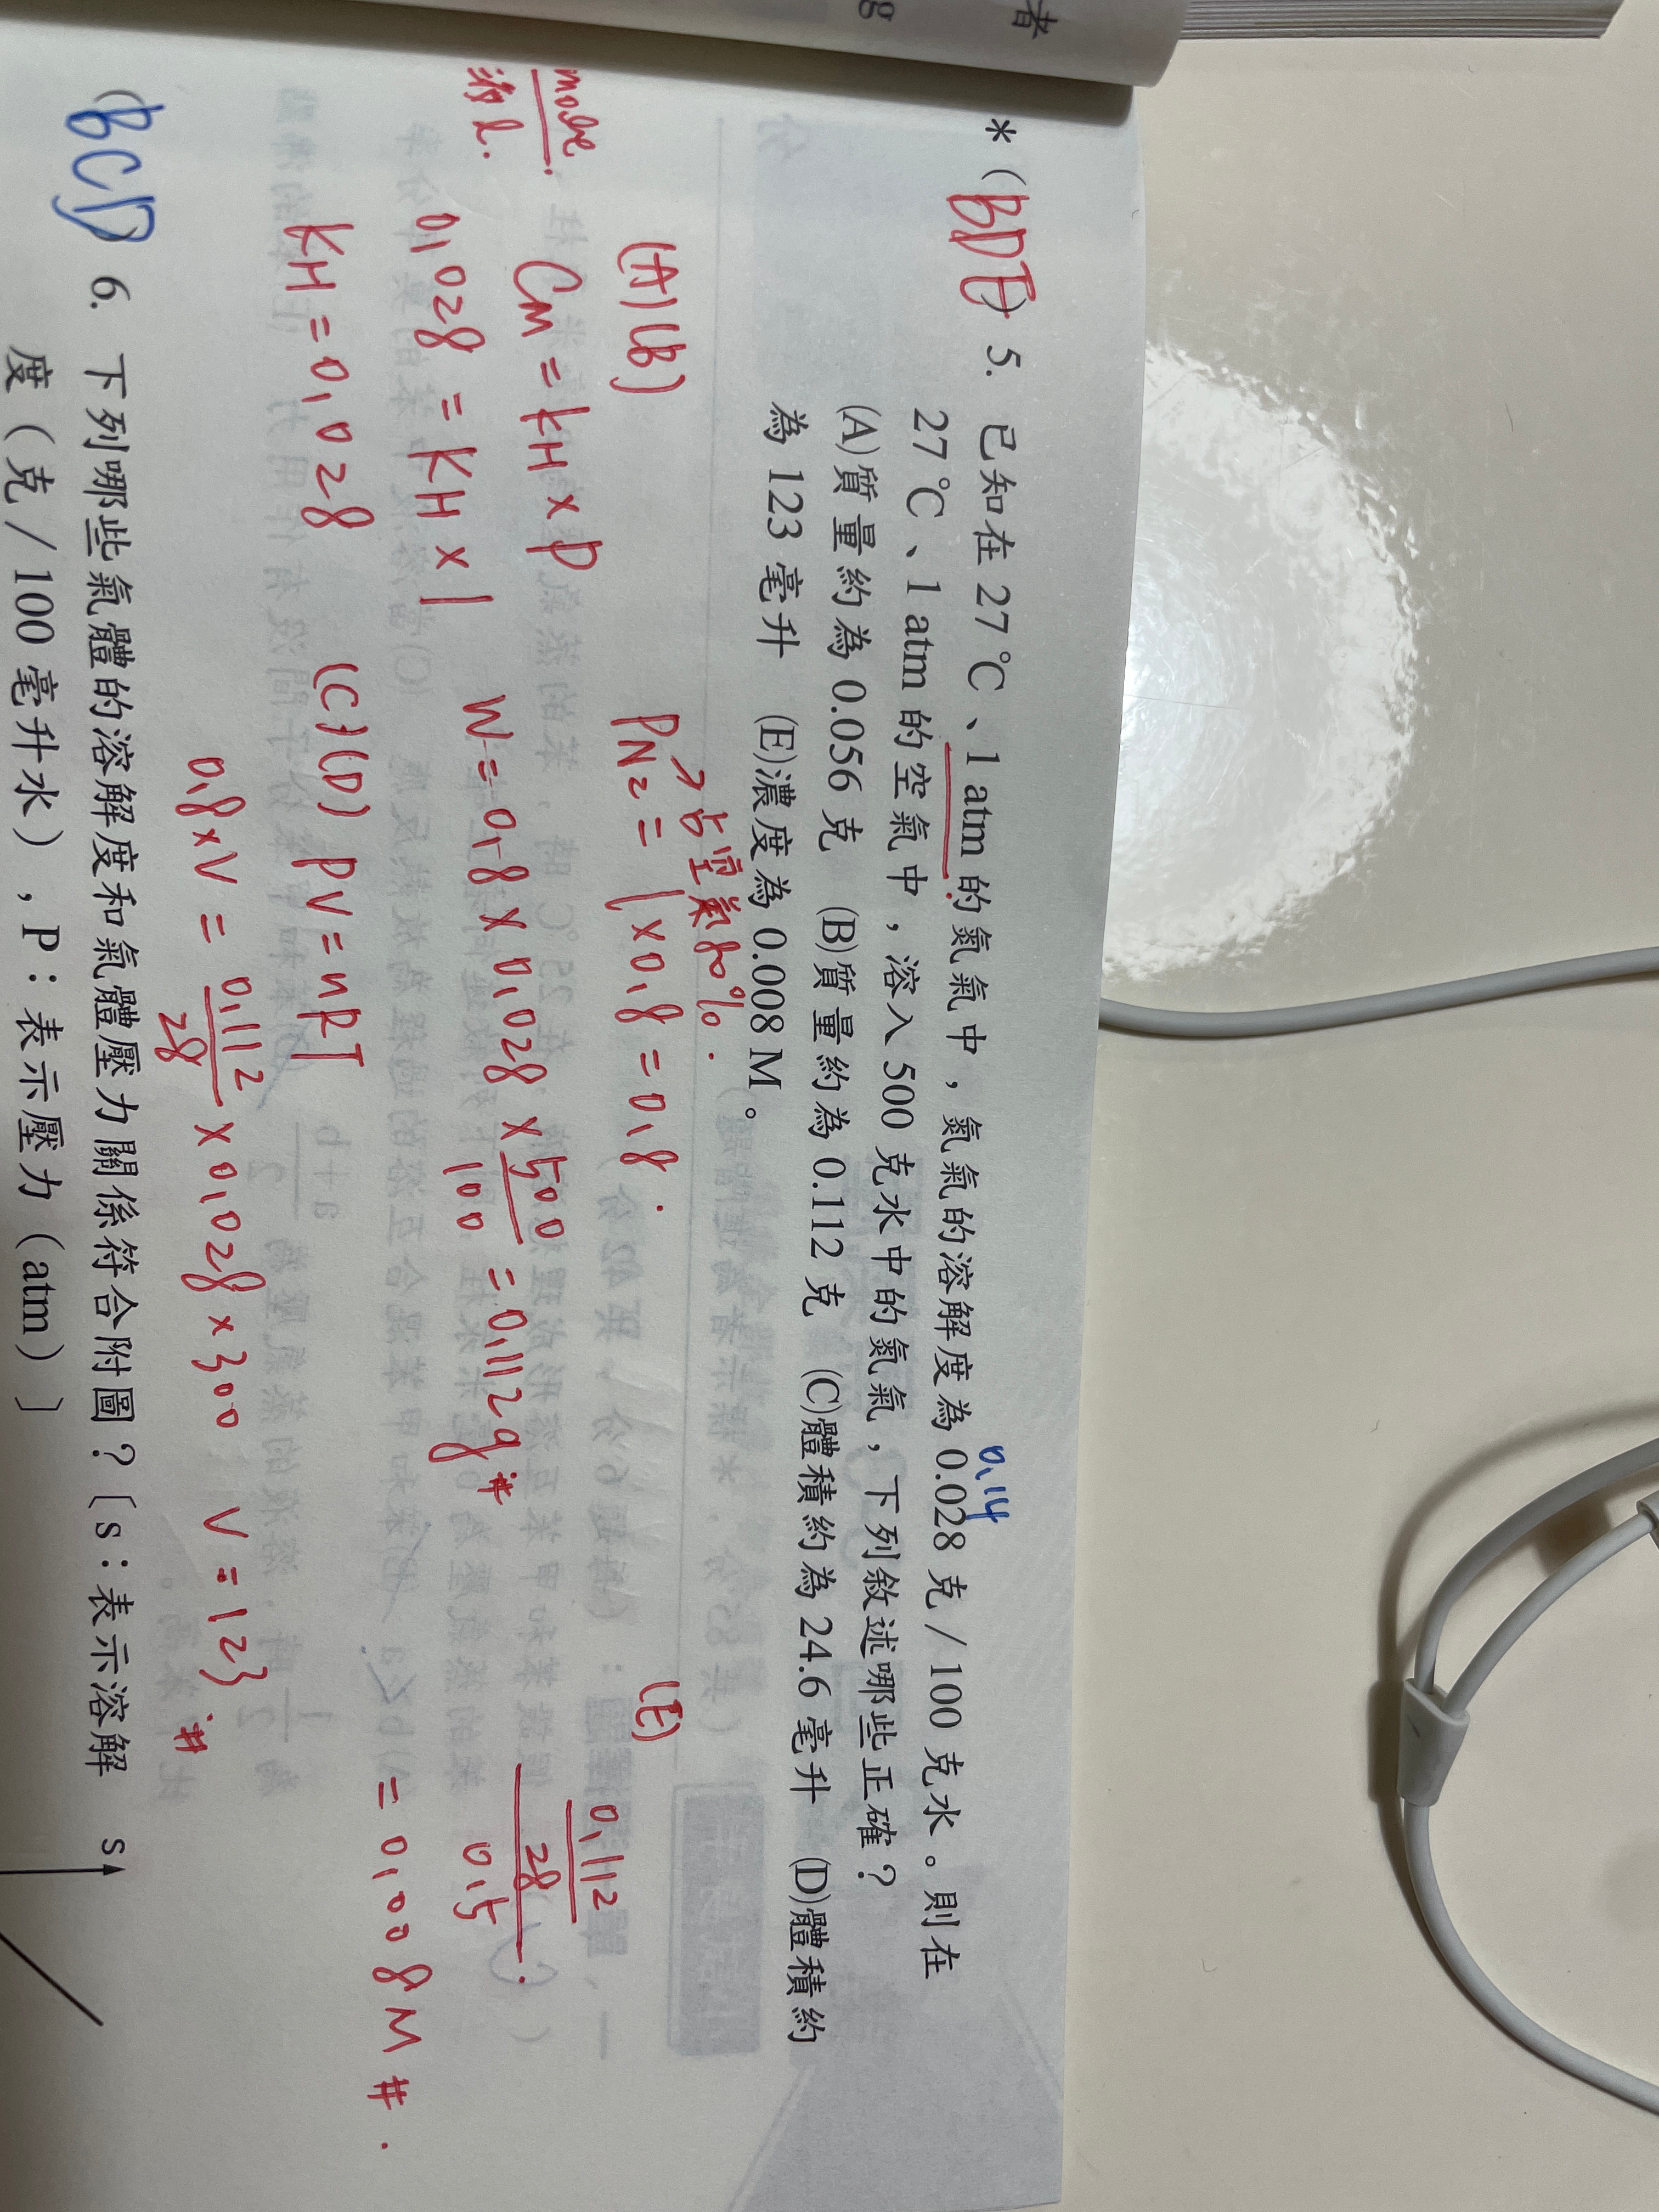 者
g
*(BDE) 5. 已知在 27 ℃、1 atm 的氮氣中，氮氣的溶解度為 0.028 克/100 克水。則在
0.14
27 ℃、1 atm 的空氣中，溶入 500 克水中的氮氣，下列敘述哪些正確？
(A)質量約為 0.056 克 (B)質量約為 0.112 克 (C)體積約為 24.6 毫升 (D)體積約
為 123 毫升 (E)濃度為 0.008 M。
(A)(B)
CM = KH × P
0.028 = KH × 1
KH = 0.028
→ 占空氣80%.
PN2 = 1 × 0.8 = 0.8.
W = 0.8 × 0.028 × 500/100 = 0.112g #
(C)(D) PV = nRT
0.8 × V = 0.112/28 × 0.028 × 300 V = 123 #
(E)
0.112
28
0.5
= 0.008 M #.
(BCD) 6. 下列哪些氣體的溶解度和氣體壓力關係符合附圖？〔s：表示溶解
度（克/100 毫升水），P：表示壓力（atm）〕
s